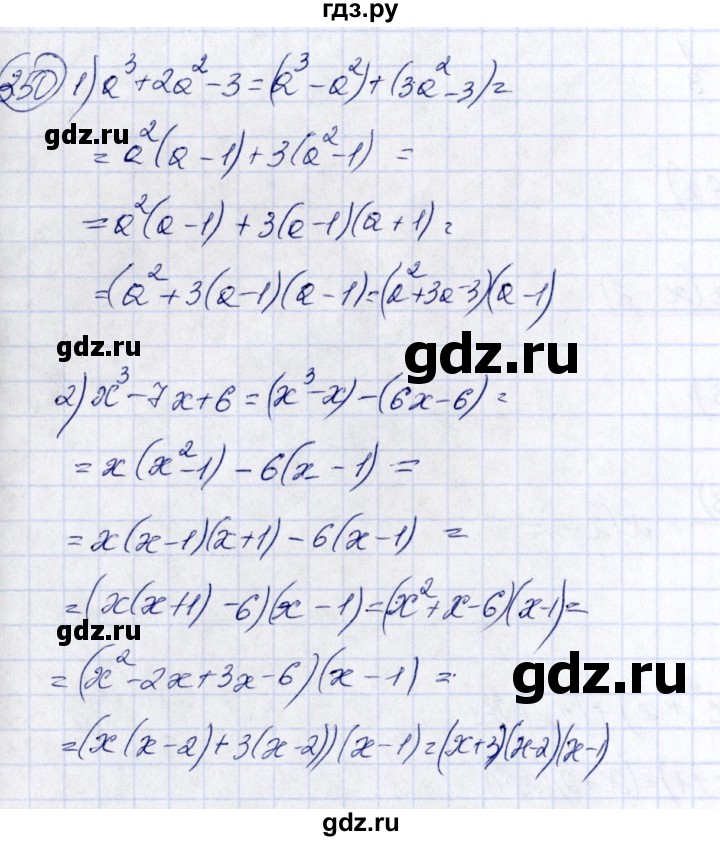 гдз.ру
250 1) a³+2a²-3=(a³-a²)+(3a²-3)=
gdz.ru
=a²(a-1)+3(a²-1) =
=a²(a-1)+3(a-1)(a+1)=
=(a²+3(a-1)(a-1)=(a²+3a-3)(a-1)
gdz.ru
gdz.ru
2) x³-7x+6=(x³-x)-(6x-6)=
=x(x²-1)-6(x-1)=
=x(x-1)(x+1)-6(x-1) =
=(x(x+1)-6)(x-1)=(x²+x-6)(x-1)=
gdz.ru
gdz.ru
=(x²-2x+3x-6)(x-1)=
=(x(x-2)+3(x-2))(x-1)=(x+3)(x-2)(x-1)
gdz.ru